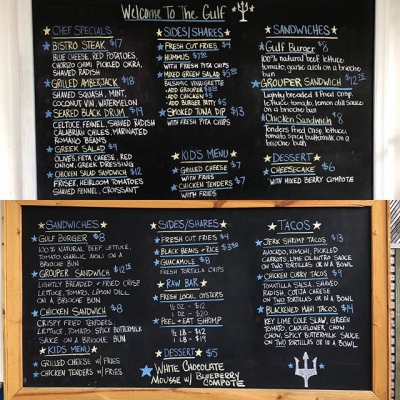 Welcome To The Gulf
CHEF SPECIALS
BISTRO STEAK $17
BLUE CHEESE, RED POTATOES,
CHORIZO CHIMI PICKLED OKRA,
SHAVED RADISH
GRILLED AMBERJACK $18
SHAVED SQUASH, MINT,
COCONUT VIN, WATERMELON
SEARED BLACK DRUM $19
CELTUCE, FENNEL, SHAVED RADISH
CALABRIAN CHILES, MARINATED
ROMANO BEANS
GREEK SALAD $9
OLIVES, FETA CHEESE, RED
ONION, GREEK DRESSING
CHICKEN SALAD SANDWICH $12
FRISEE, HEIRLOOM TOMATOES
SHAVED FENNEL, CROISSANT
SIDES/SHARES
FRESH CUT FRIES $4
HUMMUS
WITH FRESH PITA CHIPS
MIXED GREEN SALAD
BALSAMIC VINAIGRETTE
ADD GROUPER $8
ADD CHICKEN $5
ADD BURGER PATTY $5
SMOKED TUNA DIP $13
WITH FRESH PITA CHIPS
KID'S MENU
GRILLED CHEESE $7
WITH FRIES
CHICKEN TENDERS $7
WITH FRIES
SANDWICHES
Gulf Burger $8
100% natural beef lettuce
tomato, garlic aioli on a brioche
bun
GROUPER SANDWICH
Lightly breaded & fried crisp
lettuce, tomato, lemon dill sauce
on a brioche bun
Chicken Sandwich $8
Tenders fried crisp lettuce,
tomato, spicy buttermilk sauce
on a brioche bun
DESSERT
CHEESECAKE $6
WITH MIXED BERRY COMPOTE
SANDWICHES
GULF BURGER $8
100% NATURAL BEEF, LETTUCE,
TOMATO, GARLIC, AIOLI ON A
BRIOCHE BUN
GROUPER SANDWICH
LIGHTLY BREADED & FRIED CRISP
LETTUCE, TOMATO, LEMON DILL,
ON A BRIOCHE BUN
CHICKEN SANDWICH $8
CRISPY FRIED TENDERS,
LETTUCE, TOMATO SPICY BUTTERMILK
SAUCE ON A BRIOCHE BUN
KID'S MENU
GRILLED CHEESE W/FRIES
CHICKEN TENDERS W/FRIES
SIDES/SHARES
FRESH CUT FRIES $4
BLACK BEANS & RICE
GUACAMOLE $8
FRESH TORTILLA CHIPS
RAW BAR
FRESH LOCAL OYSTERS
1/2 DZ - $12
1 DZ - $20
PEEL & EAT SHRIMP
1/2 LB - $12
1 LB - $19
DESSERT $5
WHITE CHOCOLATE
MOUSSE W/ BLUEBERRY
COMPOTE
TACOS
JERK SHRIMP TACOS $13
AVOCADO, KIMCHI, PICKLED
CARROTS, LIME CILANTRO SAUCE
ON TWO TORTILLAS OR IN A BOWL
CHICKEN CURRY TACOS $9
TOMATILLA SALSA, SHAVED
RADISH, COTIJA CHEESE
ON TWO TORTILLAS OR IN A BOWL
BLACKENED MAHI TACOS $14
KEY LIME COLE SLAW, GREEN
TOMATO, CAULIFLOWER, CHOW
CHOW, SPICY BUTTERMILK SAUCE
ON TWO TORTILLAS OR IN A BOWL